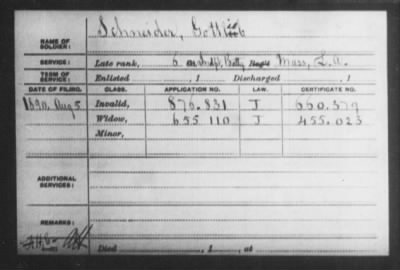 NAME OF SOLDIER: Schneider, Gottlieb
SERVICE: Late rank, 6 Batty Mass, L.A.
TERM OF SERVICE: Enlisted , 1 Discharged , 1
DATE OF FILING. CLASS. APPLICATION NO. LAW. CERTIFICATE NO.
1890, Aug 5 Invalid, 876.831 J 660.379
Widow, 655 110 J 455.023
Minor,
ADDITIONAL SERVICES:
REMARKS:
Died , 1 , at